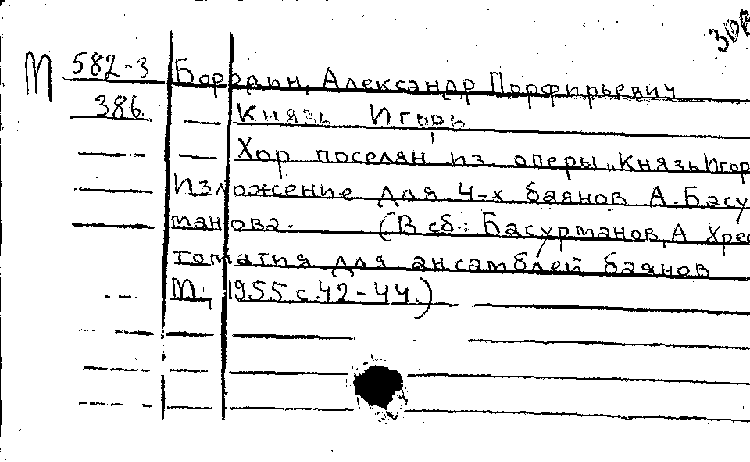 М 582-3 Бородин, Александр Порфирьевич
386. Князь Игорь
Хор поселян из оперы „Князь Игор
Изложение для 4-х баянов А. Басу
манова. (В сб.: Басурманов, А Хрес
томатия для ансамблей баянов
М., 1955 с. 42-44.)